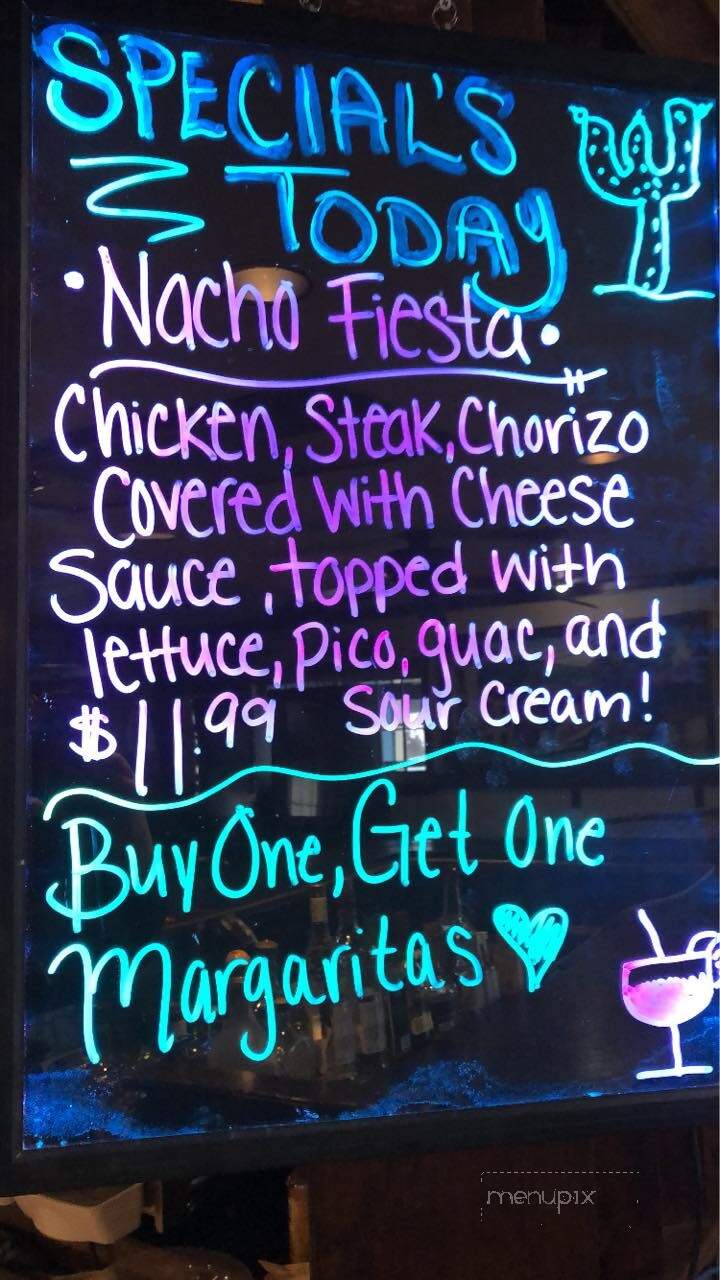 SPECIAL'S
TODAY
• Nacho Fiesta •
Chicken, Steak, Chorizo
Covered with Cheese
Sauce, topped with
lettuce, pico, guac, and
$11.99 Sour Cream!
Buy One, Get One
Margaritas ♥
menupix